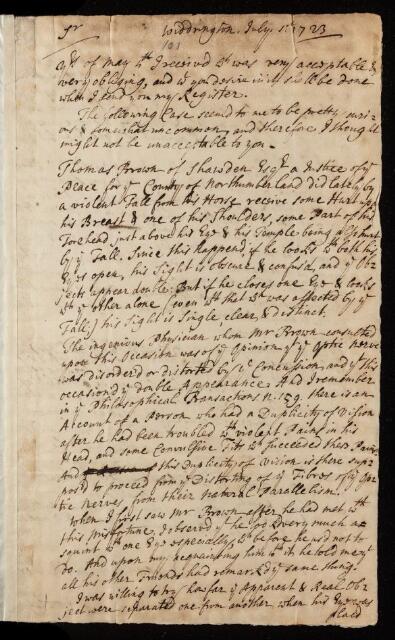 Sr Widdrington. July 1st 1723
101
Yrs of May 4th I received wch was very acceptable &
very obliging, and wt you desire in it shall be done
when I send you my Register.
The following Case seem'd to me to be pretty curi-
ous & somewhat uncommon, and therefore I thought
might not be unacceptable to you.
Thomas Brown of Shawden Esqr a Justice of ye
Peace for ye County of Northumberland did lately by
a violent Fall from his Horse receive some Hurt upon
his Breast & one of his Shoulders, some Part of his
Forehead just above his Eye & his Temple being also hurt
by ye Fall. Since this happen'd if he looks wth both his
Eyes open, his Sight is obscure & confus'd, and ye Obj-
jects appear double: But if he closes one Eye & looks
wth ye other alone (even tht wch was affected by ye
Fall) his Sight is Single, clear, & distinct.
The ingenious Physician whom Mr Brown consulted
upon this Occasion was of ye Opinion yt ye optic nerve
was disorder'd or distorted by ye Concussion, and yt this
occasion'd ye double Appearance. And I remember
in ye Philosophical Transactions n. 159. there is an
Account of a Person who had a Duplicity of Vision
after he had been troubled wth violent Pains in his
Head, and some Convulsive Fits wch succeeded these Pains,
And this Duplicity of Vision is there sup-
pos'd to proceed from ye Distorting of ye Fibres of ye Op-
tic Nerves from their Natural Parallelism.
When I first saw Mr Brown after he had met wth
this Misfortune, I observ'd yt he look'd very much a-
squint wth one Eye especially, wch before he us'd not to
do. And upon my acquainting him wth it, he told me yt
all his other Friends had remark'd ye same thing.
I was willing to try how far ye Apparent & Real Ob-
ject were separated one from another when his Eye was
plac'd